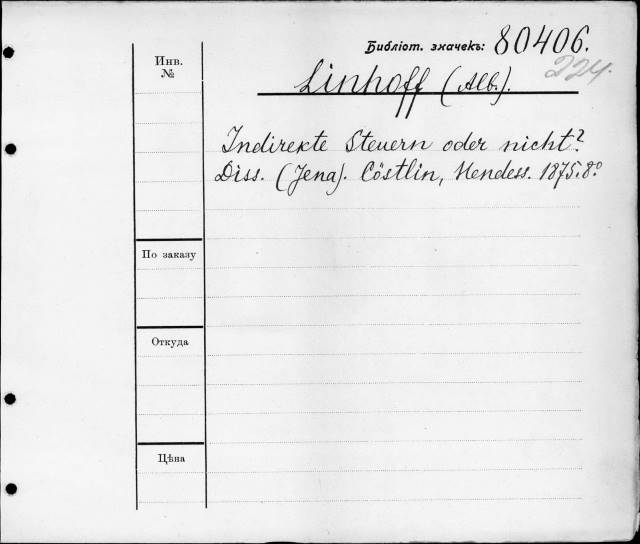 Библіот. значекъ: 80406.
224.
Инв. №
Linhoff (Alb.).
Indirekte Steuern oder nicht?
Diss. (Jena). Cöstlin, Hendess. 1875. 8.º
По заказу
Откуда
Цѣна